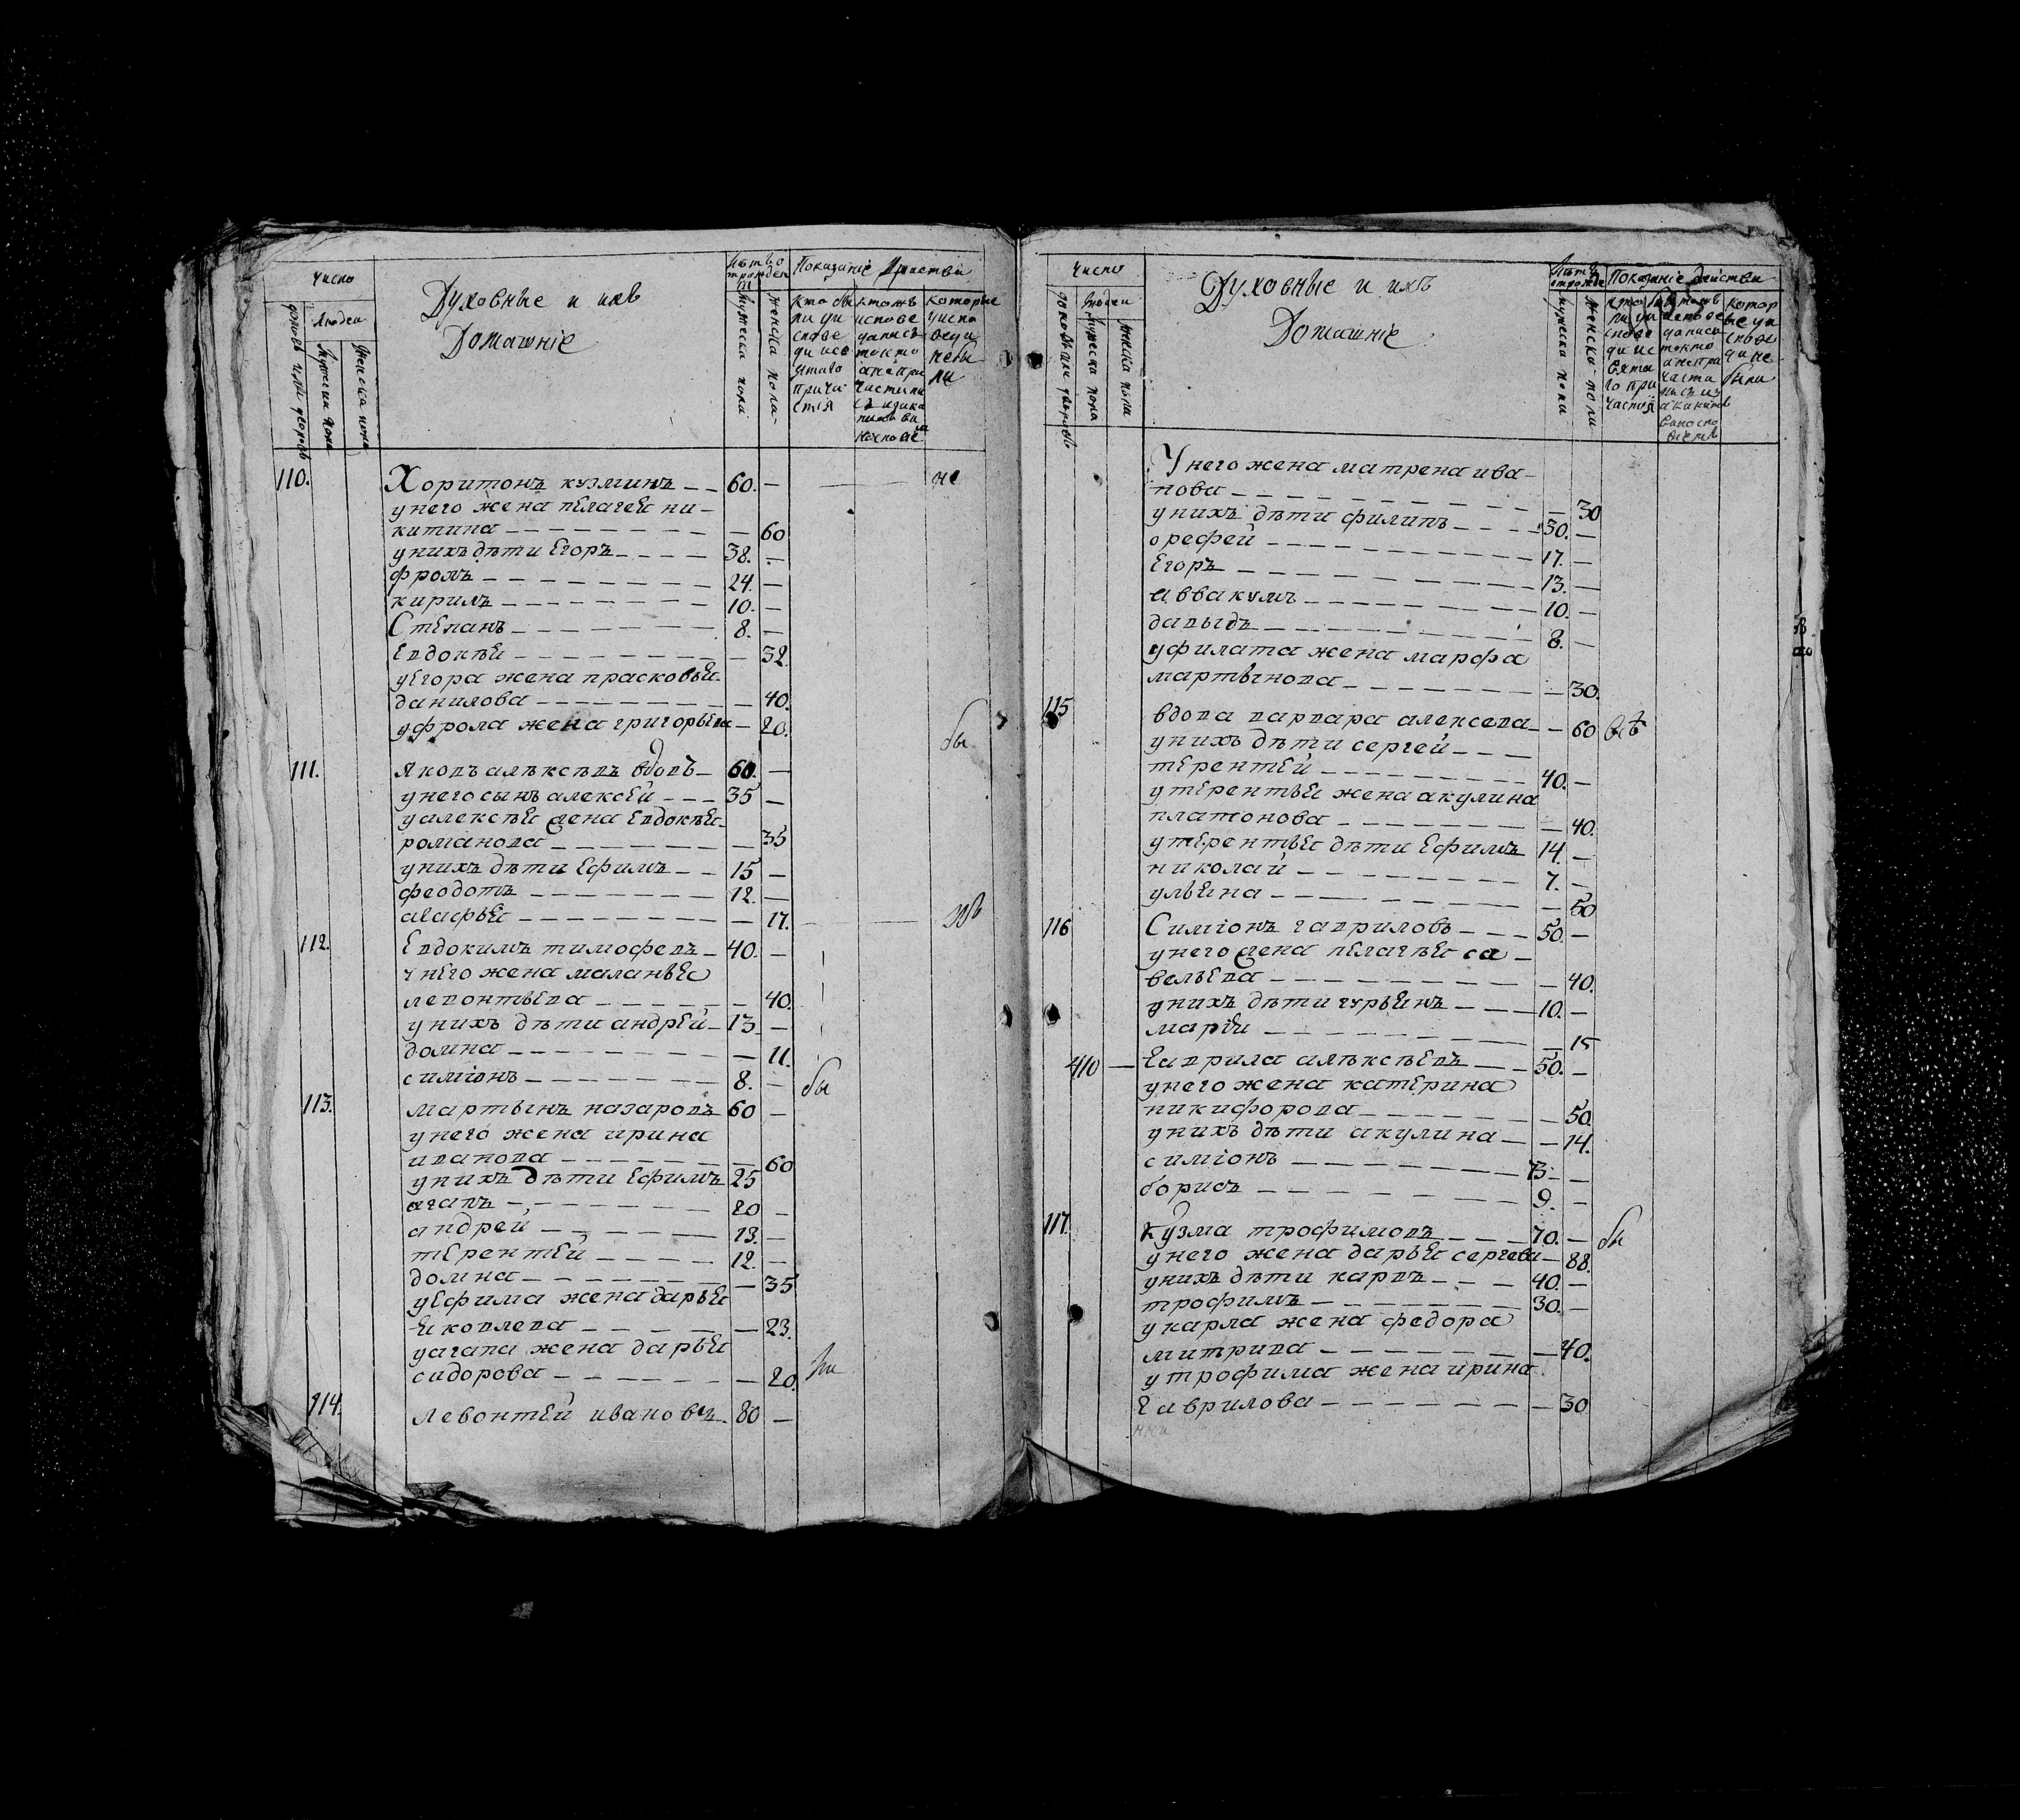 Число
Людеи
домовъ или дворовъ
мужеска пола
женска пола
Духовные и ихъ
Домашніе
Лѣтъ о
трожден
мужеска пола
женска пола
Показаніе
Кто бы
ли уи
спове
ди
ктожъ
испове
дались
токмо
анепри
которые
уиспо
веди
небы
ли
110. Хоритонъ кузминъ 60. не
унего жена пелагеи ни-
китина 60
унихъ дѣти Егоръ 38.
фролъ 24.
кирилъ 10.
Степанъ 8.
Евдокѣи 32.
уегора жена прасковьеи
данилова 40.
уфрола жена григорьева 20.
бы
111. яковъ алѣксѣвъ вдовъ 60.
унего сынъ алексей 35
уалексѣи жена Евдокѣи
романова 35
унихъ дѣти Ефимъ 15
феодотъ 12.
агафьеи 17.
112. Евдокимъ тимофевъ 40.
унего жена маланьеи
левонтьева 40.
унихъ дѣти андрей 13
домна 11.
симіонъ 8. бы
113. мартынъ назаровъ 60
унего жена ирина
иванова 60
унихъ дѣти Ефимъ 25
агапъ 20
андрей 13.
терентей 12
домна 35
уефима жена дарьеи
еиковлева 23.
уагапа жена дарьеи
сидорова 20.
114. левонтей ивановъ 80
Число
Людеи
мужеска пола
женска пола
Духовные и ихъ
Домашніе
мужеска пола
женска пола
Показаніе действи
котор
ые уи
спове
ди не
были
Унего жена матрена ива-
нова 30
унихъ дѣти филипъ 30.
орефей 17.
Егоръ 13.
аввакумъ 10.
давыдъ 8.
уфилата жена марфа
мартынова 30.
115 вдова варвара алексева 60
унихъ дѣти сергей
терентей 40.
утерентьеи жена акулина
платонова 40.
утерентьеи дѣти Ефимъ 14.
николай 7.
ульеина 50
116 Симіонъ гавриловъ 50.
унего жена пелагѣеи са-
вельева 40.
унихъ дѣти гурьеинъ 10.
маріи 15
410 Гаврила алѣксѣевъ 50.
унего жена катерина
никифорова 50.
унихъ дѣти акулина 14.
симіонъ 13.
борисъ 9.
117. Кузма трофимовъ 70. бы
унего жена дарьеи сергева 88.
унихъ дѣти карпъ 40.
трофимъ 30.
укарпа жена федора
митрива 40.
утрофима жена ирина
Гаврилова 30